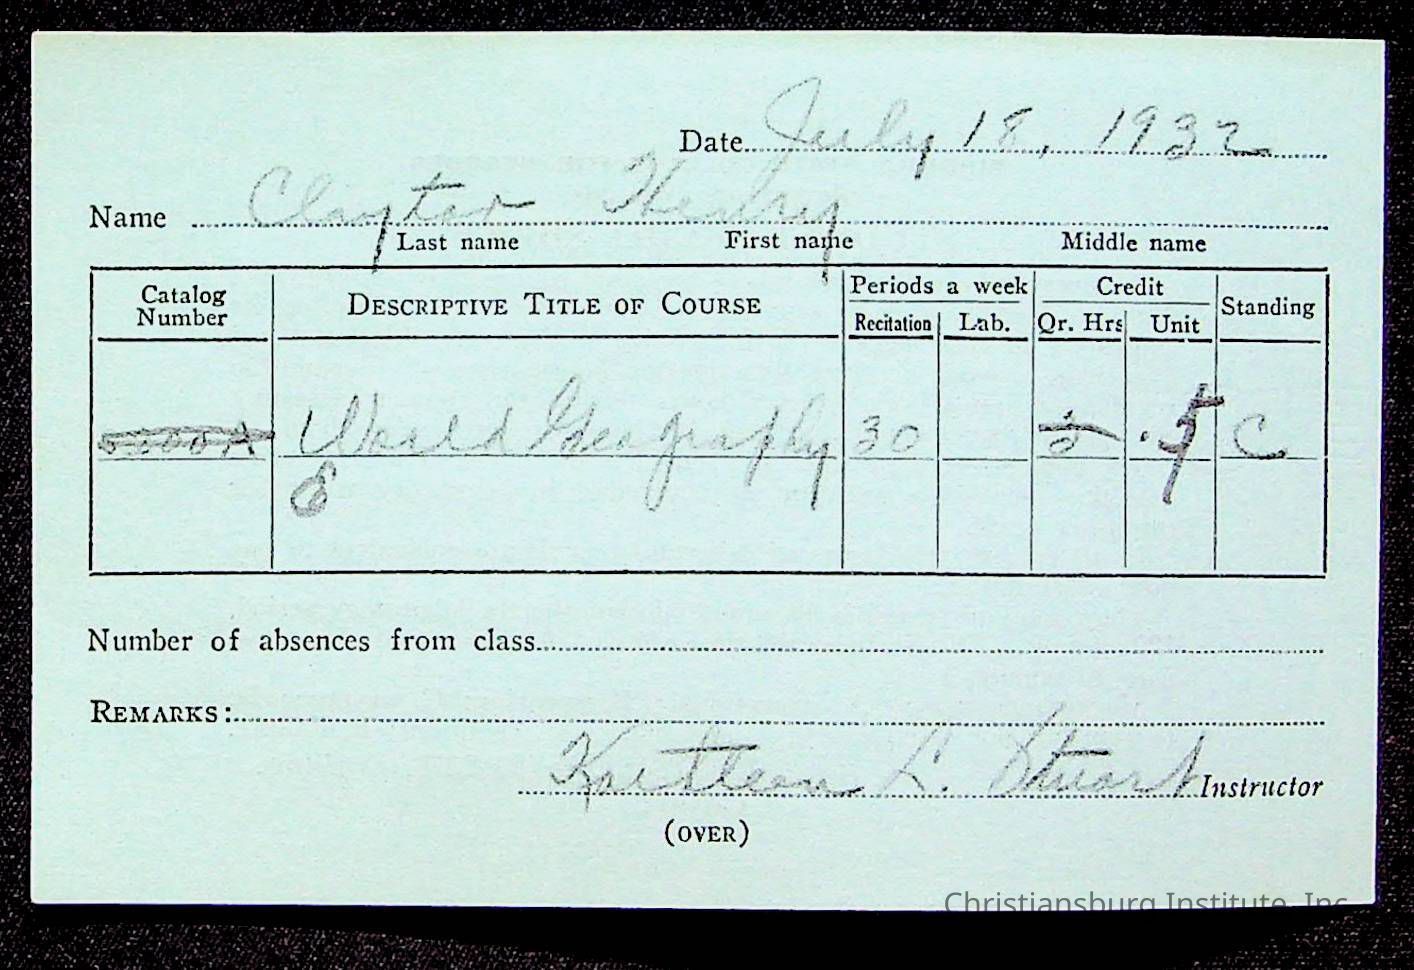 Date July 18, 1932
Name Claytor Henry
Last name First name Middle name
Catalog Number DESCRIPTIVE TITLE OF COURSE Periods a week Credit Standing
Recitation Lab. Qr. Hrs Unit
World Geography 30 .5 C
8
Number of absences from class
REMARKS:
L. Stuart Instructor
(OVER)
Christiansburg Institute, Inc.